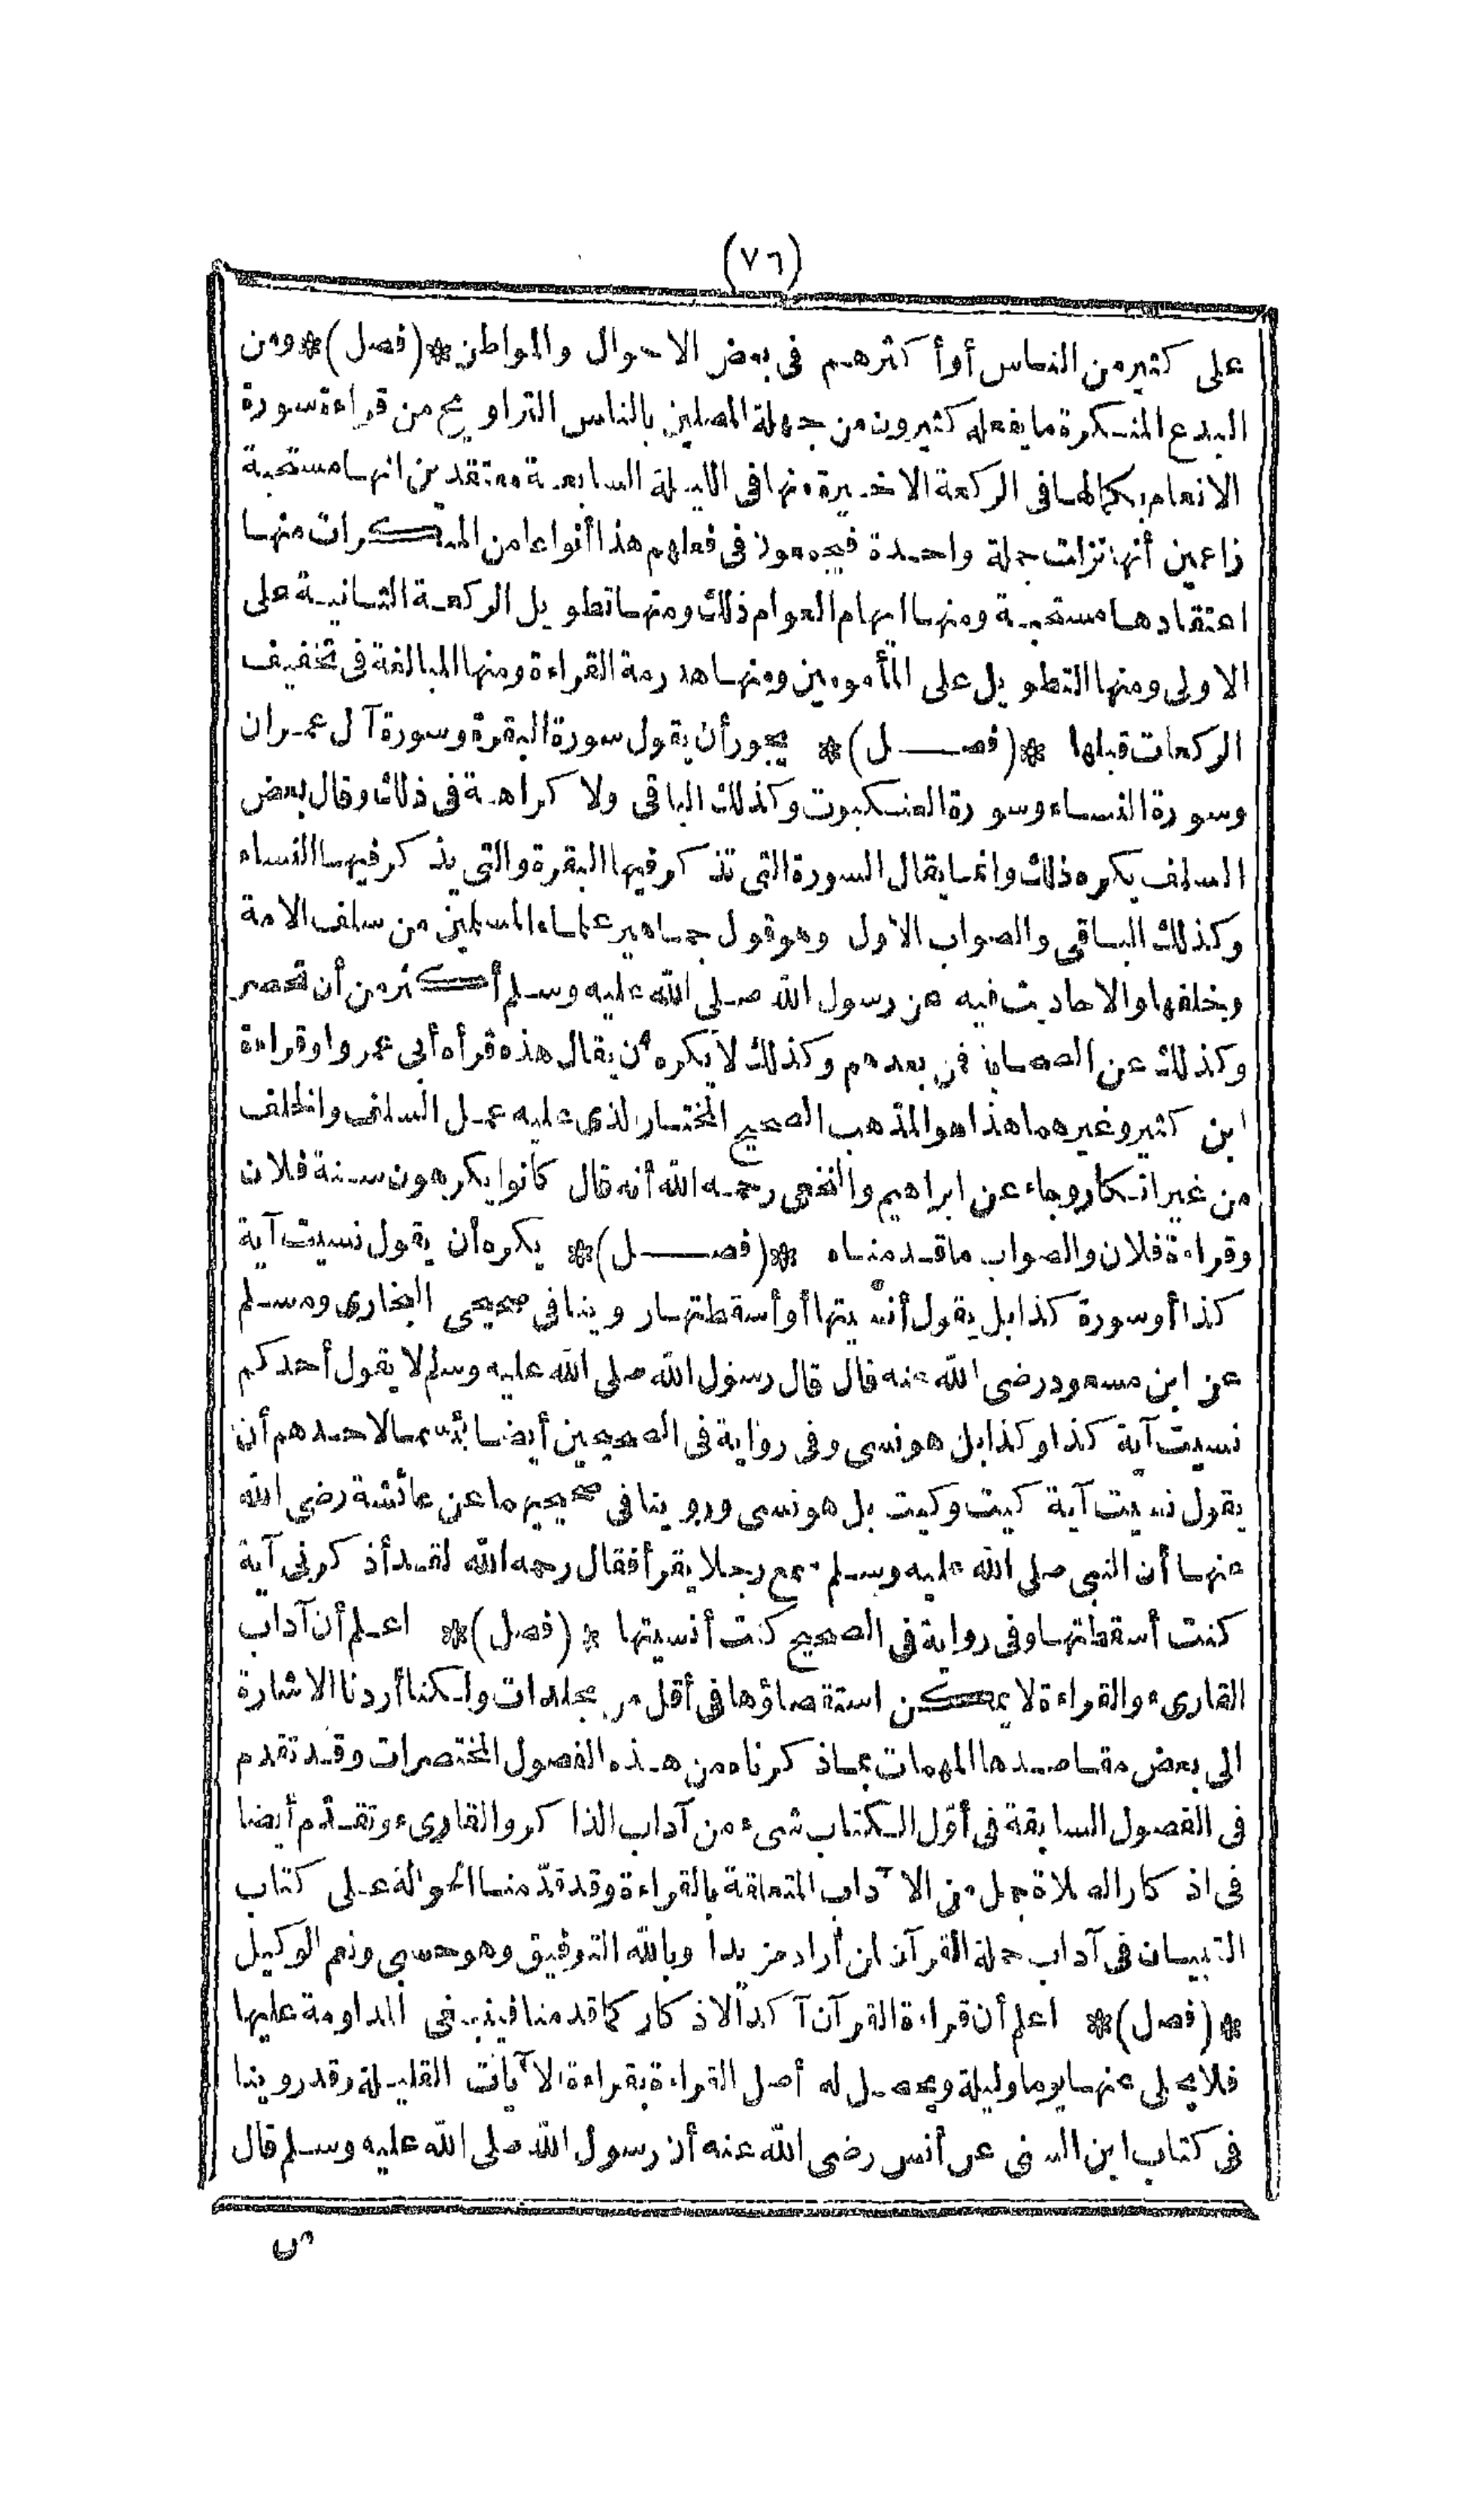 (٧٦)
على كثير من الناس أو أكثرهم فى بعض الاحوال والمواطن *(فصل)* ومن
البدع المنكرة ما يفعله كثيرون من جهلة المصلين بالناس التراويح من قراءة سورة
الانعام بكمالها فى الركعة الاخيرة منها فى الليلة السابعة معتقدين انها مستحبة
زاعمين أنها نزلت جملة واحدة فيجمعون فى فعلهم هذا أنواعا من المنكرات منها
اعتقادها مستحبة ومنها ايهام العوام ذلك ومنها تطويل الركعة الثانية على
الاولى ومنها التطويل على المأمومين ومنها هدرمة القراءة ومنها المبالغة فى تخفيف
الركعات قبلها *(فصل)* يجوز أن يقول سورة البقرة وسورة آل عمران
وسورة النساء وسورة العنكبوت وكذلك الباقى ولا كراهة فى ذلك وقال بعض
السلف يكره ذلك وانما يقال السورة التى تذكر فيها البقرة والتى يذكر فيها النساء
وكذلك الباقى والصواب الأول وهو قول جماهير علماء المسلمين من سلف الامة
وخلفها والاحاديث فيه عن رسول الله صلى الله عليه وسلم أكثر من أن تحصر
وكذلك عن الصحابة فمن بعدهم وكذلك لا يكره أن يقال هذه قرأه أبى عمرو او قراءة
ابن كثير وغيرهما هذا هو المذهب الصحيح المختار لذى عليه عمل السلف والخلف
من غير انكار وجاء عن ابراهيم والنخعى رحمه الله أنه قال كانوا يكرهون سنة فلان
وقراءة فلان والصواب ما قدمناه *(فصل)* يكره أن يقول نسيت آية
كذا أو سورة كذا بل يقول أنسيتها أو أسقطتها روينا فى صحيحى البخارى ومسلم
عن ابن مسعود رضى الله عنه قال قال رسول الله صلى الله عليه وسلم لا يقول أحدكم
نسيت آية كذا وكذا بل هو نسى وفى رواية فى الصحيحين أيضا بئسما لاحدهم أن
يقول نسيت آية كيت وكيت بل هو نسى وروينا فى صحيحيهما عن عائشة رضى الله
عنها أن النبى صلى الله عليه وسلم سمع رجلا يقرأ فقال رحمه الله لقد أذكرنى آية
كنت أسقطتها وفى رواية فى الصحيح كنت أنسيتها *(فصل)* اعلم أن آداب
القارىء والقراءة لا يمكن استقصاؤها فى أقل من مجلدات ولكنا أردنا الاشارة
الى بعض مقاصدها المهمات بما ذكرناه من هذه الفصول المختصرات وقد تقدم
فى الفصول السابقة فى أوّل الكتاب شىء من آداب الذاكر والقارىء وتقدّم أيضا
فى اذكار الصلاة جمل من الآداب المتعلقة بالقراءة وقد قدّمنا الحوالة على كتاب
التبيان فى آداب حملة القرآن لمن أراد مزيدا وبالله التوفيق وهو حسبى ونعم الوكيل
*(فصل)* اعلم أن قراءة القرآن آكد الاذكار كما قدمنا فينبغى المداومة عليها
فلا يخلى عنها يوما وليلة ويحصل له أصل القراءة بقراءة الآيات القليلة وقد روينا
فى كتاب ابن السنى عن أنس رضى الله عنه أن رسول الله صلى الله عليه وسلم قال
من